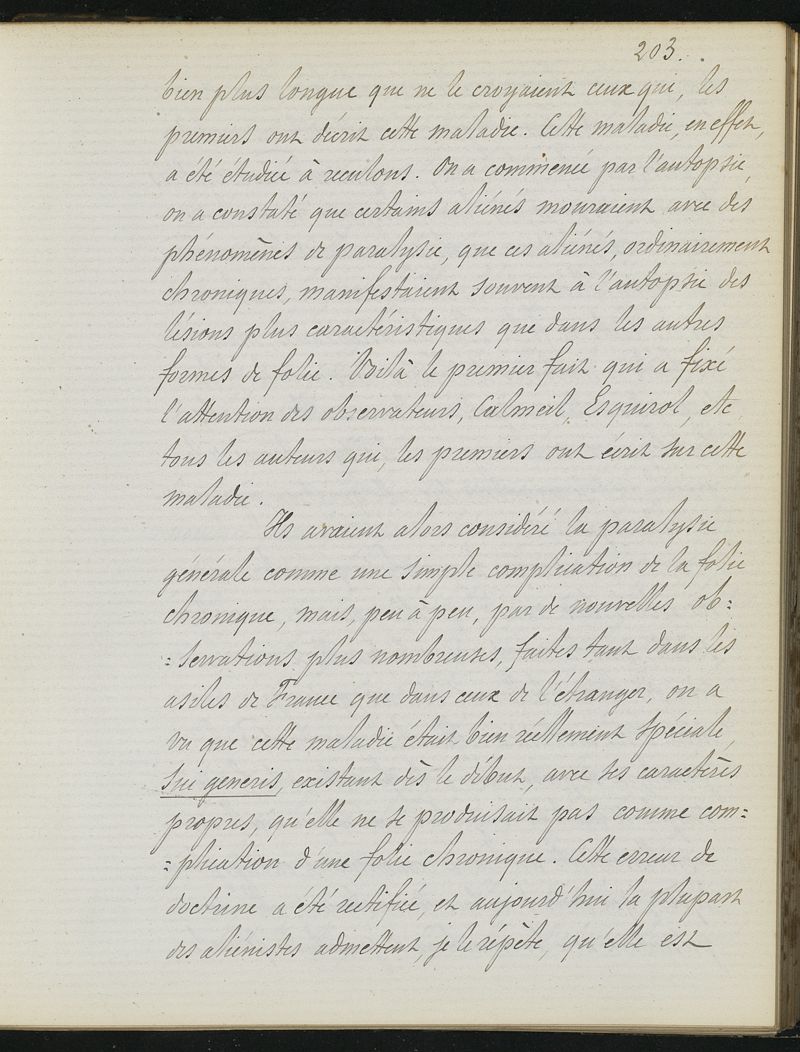 203.
bien plus longue que ne le croyaient ceux qui, les
premiers ont décrit cette maladie. Cette maladie, en effet,
a été étudiée à reculons. On a commencé par l'autopsie,
on a constaté que certains aliénés mouraient avec des
phénomènes de paralysie, que ces aliénés, ordinairement
chroniques, manifestaient souvent à l'autopsie des
lésions plus caractéristiques que dans les autres
formes de folie. Voilà le premier fait qui a fixé
l'attention des observateurs, Calmeil, Esquirol, etc,
tous les auteurs qui, les premiers ont écrit sur cette
maladie.
Ils avaient alors considéré la paralysie
générale comme une simple complication de la folie
chronique, mais, peu à peu, par de nouvelles ob=
=servations plus nombreuses, faites tant dans les
asiles de France que dans ceux de l'étranger, on a
vu que cette maladie était bien réellement spéciale,
sui generis, existant dès le début, avec ses caractères
propres, qu'elle ne se produisait pas comme com=
=plication d'une folie chronique. Cette erreur de
doctrine a été rectifiée, et aujourd'hui la plupart
des aliénistes admettent, je le répète, qu'elle est